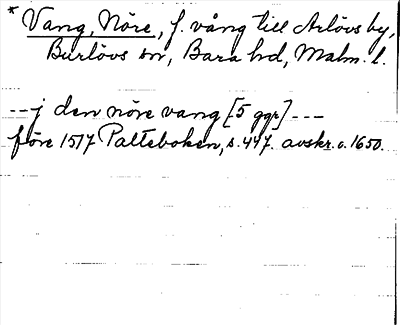 * Vang, Nöre, f. vång till Arlövs by,
Burlövs sn, Bara hd, Malm. l.
--- j den nöre vang [5 ggr] ---
före 1517 Palteboken, s. 447. avskr. c. 1650.